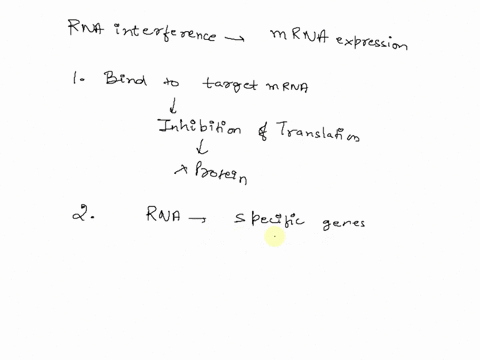 RNA interference → mRNA expression
1. Bind to target mRNA
↓
Inhibition of Translation
↓
x Protein
2. RNA → specific genes